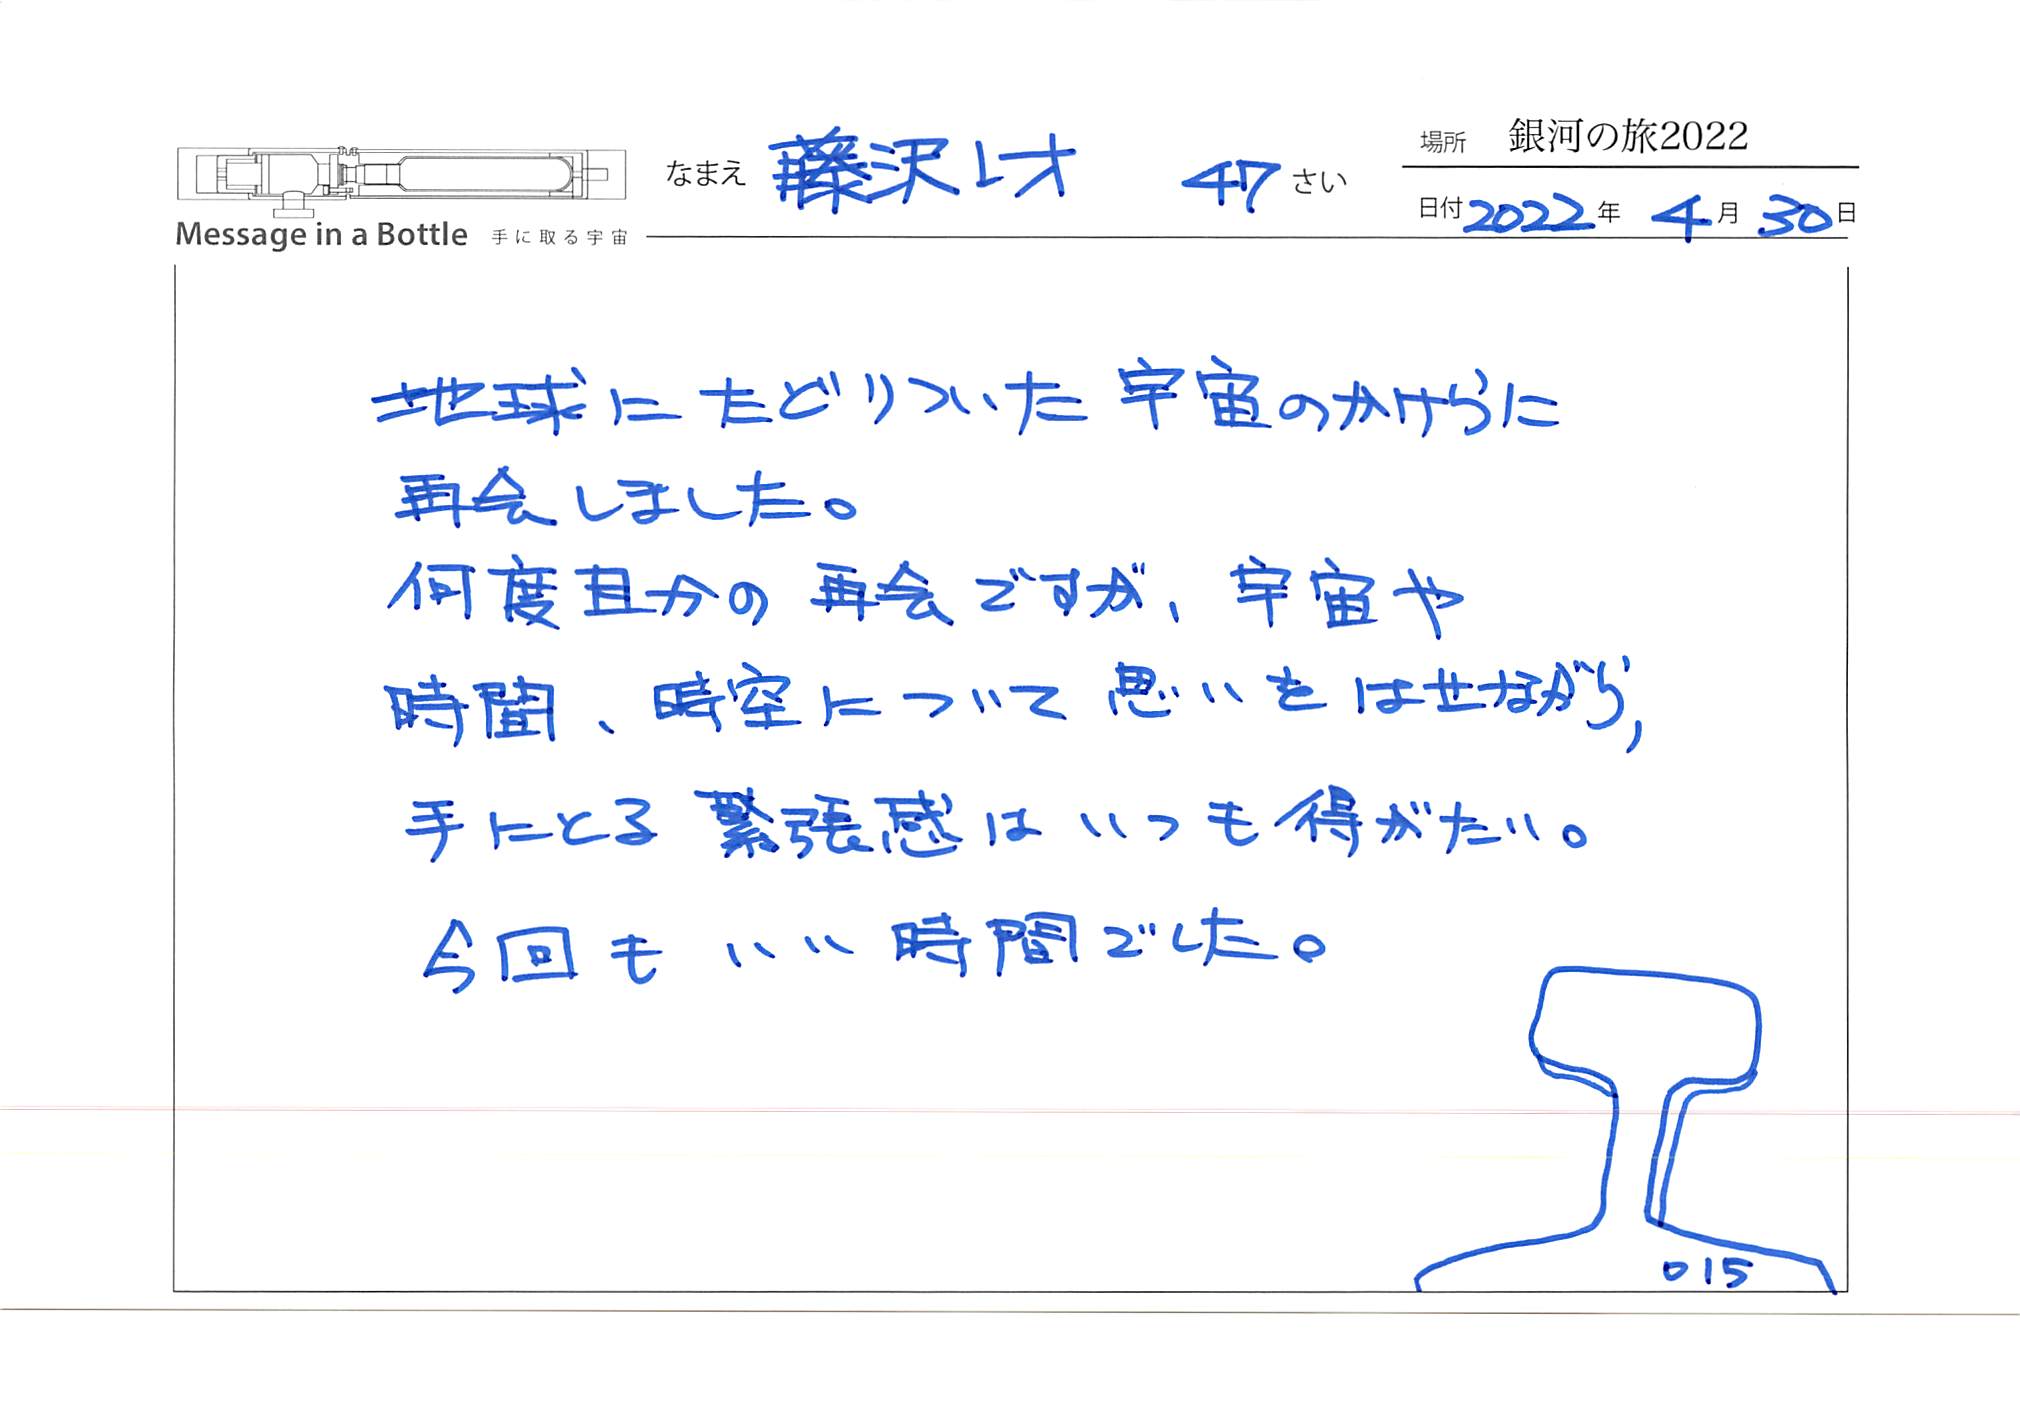 なまえ 藤沢レオ 47さい
場所 銀河の旅2022
日付 2022年 4月 30日
Message in a Bottle 手に取る宇宙
地球にたどりついた宇宙のかけらに
再会しました。
何度目かの再会ですが、宇宙や
時間、時空について思いをはせながら、
手にとる緊張感はいつも得がたい。
今回もいい時間でした。
015